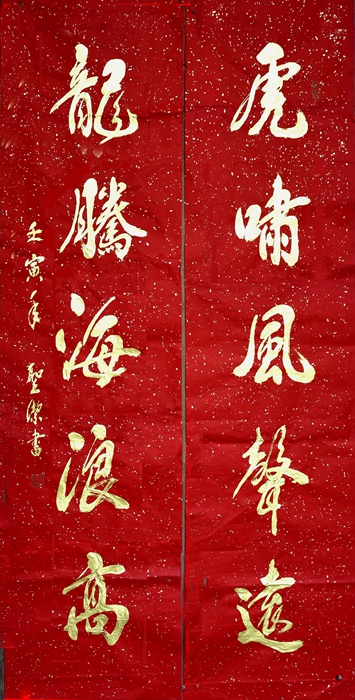 虎嘯風聲遠
龍騰海浪高
壬寅年 聖潔書